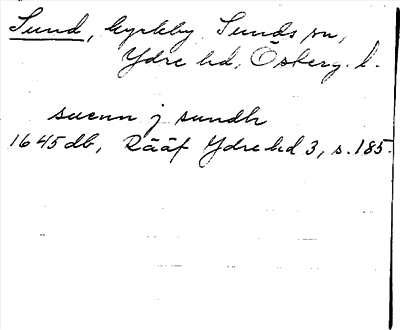 Sund, kyrkby Sunds sn,
Ydre hd, Östberg. l.
suenn j sundh
1645 db, Rääf Ydre hd 3, s. 185.